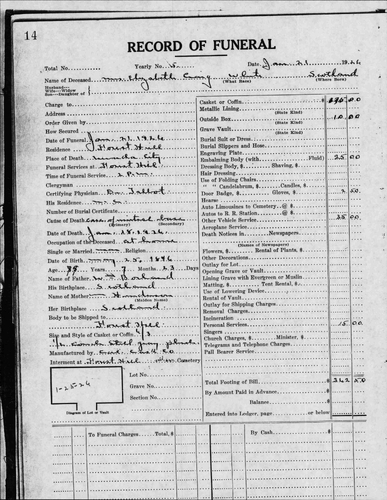 14
RECORD OF FUNERAL
Total No. Yearly No. 5 Date, Jan 21 1926
Name of Deceased Mrs Elizabeth White Scotland
(What Race) (Where Born)
Husband—
Wife—Widow
Son—Daughter of
Charge to
Address
Order Given by
How Secured
Date of Funeral Jan 21, 1926
Residence Forest Hill
Place of Death City
Funeral Services at Forest Hill
Time of Funeral Service 2 P.M.
Clergyman
Certifying Physician Dr Talbot
His Residence
Number of Burial Certificate
Cause of Death
(Primary) (Secondary)
Date of Death Jan 18, 1926
Occupation of the Deceased at home
Single or Married Religion
Date of Birth 25, 1846
Age Years 7 Months 23 Days
Name of Father
His Birthplace Scotland
Name of Mother
(Maiden Name)
Her Birthplace Scotland
Body to be Shipped to
Forest Hill
Size and Style of Casket or Coffin
Manufactured by
Interment at Forest Hill Cemetery
1-25-26
Lot No.
Grave No.
Section No.
Diagram of Lot or Vault
Casket or Coffin $
Metallic Lining
(State Kind)
Outside Box 10.00
(State Kind)
Grave Vault
(State Kind)
Burial Suit or Dress
Burial Slippers and Hose
Engraving Plate
Embalming Body (with Fluid) 25 00
Dressing Body, $ Shaving, $
Hair Dressing
Use of Folding Chairs
" " Candelabrum, $ Candles, $
Door Badge, $ Gloves, $ 2 50
Hearse
Auto Limousines to Cemetery @ $
Autos to R. R. Station @ $
Other Vehicle Service 25 00
Aeroplane Service
Death Notices in Newspapers
(Names of Newspapers)
Flowers, $ Rental of Plants, $
Other Decorations
Outlay for Lot
Opening Grave or Vault
Lining Grave with Evergreen or Muslin
Matting, $ Tent Rental, $
Use of Lowering Device
Rental of Vault
Outlay for Shipping Charges
Removal Charges
Incineration
Personal Services 15 00
Singers
Church Charges, $ Minister, $
Telegrams and Telephone Charges
Pall Bearer Service
Total Footing of Bill $ 342 50
By Amount Paid in Advance
Balance
Entered into Ledger, page or below
To Funeral Charges Total, $
By Cash $